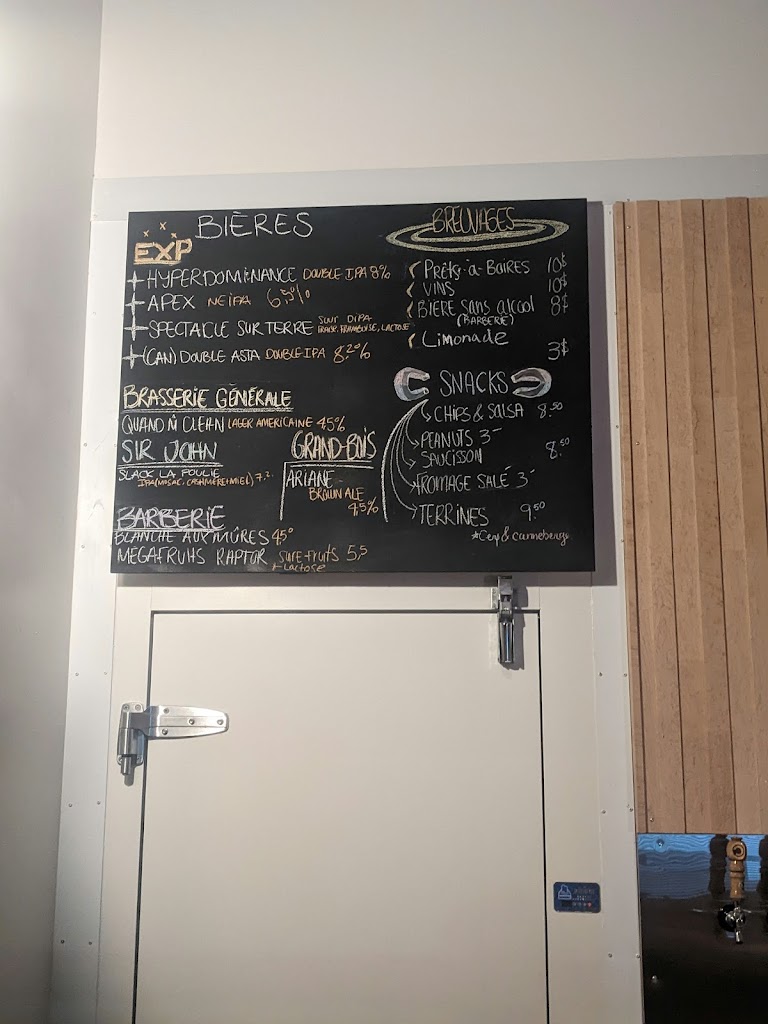 BIÈRES
EXP
HYPERDOMINANCE DOUBLE IPA 8%
APEX NEIPA 6.5%
SPECTACLE SUR TERRE SOUR DIPA
FRAMBOISE, LACTOSE
(CAN) DOUBLE ASTA DOUBLE IPA 8.2%
BRASSERIE GÉNÉRALE
QUAND LAGER AMERICAINE 4.5%
SIR JOHN
SLACK LA POULIE
IPA (MOSAC, CASHMERE+MIEL) 7.2
GRAND-BOIS
ARIANE
BROWN ALE
4.5%
BARBERIE
BLANCHE AUX MÛRES 4,5°
MEGAFRUITS RAPTOR SURE FRUITS 5,5
+ Lactose
BREUVAGES
PRÊTS-à-BOIRES 10$
VINS 10$
BIÈRE sans alcool 8$
(BARBERIE)
Limonade 3$
SNACKS
CHIPS & SALSA 8.50
PEANUTS 3-
SAUCISSON 8.50
FROMAGE SALÉ 3-
TERRINES 9.50
*Cerf & canneberge